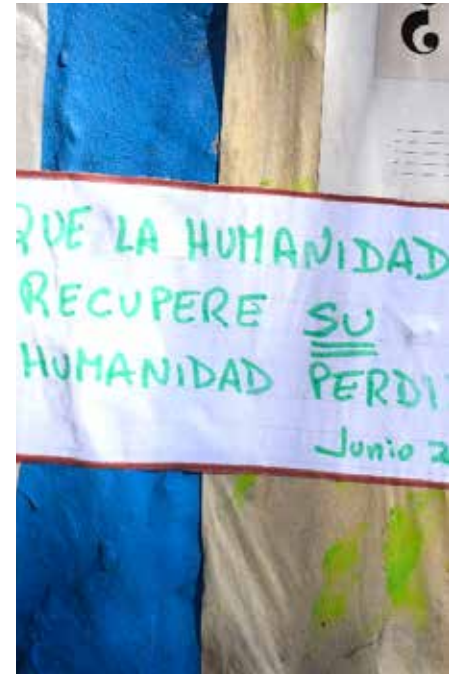 QUE LA HUMANIDAD
RECUPERE SU
HUMANIDAD PERDI
Junio 2